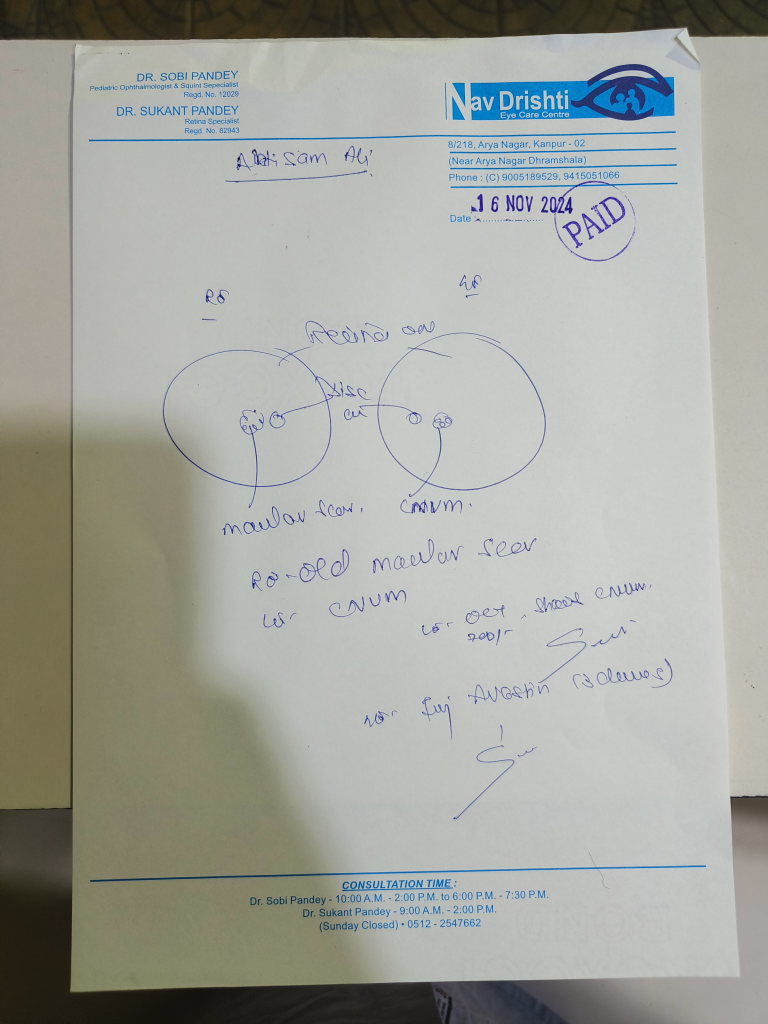 DR. SOBI PANDEY
Pediatric Ophthalmologist & Squint Sepecialist
Regd. No. 12029
DR. SUKANT PANDEY
Retina Specialist
Regd. No. 82943
Nav Drishti
Eye Care Centre
8/218, Arya Nagar, Kanpur - 02
(Near Arya Nagar Dhramshala)
Phone : (C) 9005189529, 9415051066
Date :
16 NOV 2024
PAID
Ali
RE
LE
Retina on
Disc
macular scar.
CNVM.
RE - Old macular scar
LE - CNVM
LE - OCT - shows CNVM.
700/-
LE - Inj Avastin (3 doses)
CONSULTATION TIME :
Dr. Sobi Pandey - 10:00 A.M. - 2:00 P.M. to 6:00 P.M. - 7:30 P.M.
Dr. Sukant Pandey - 9:00 A.M. - 2:00 P.M.
(Sunday Closed) • 0512 - 2547662